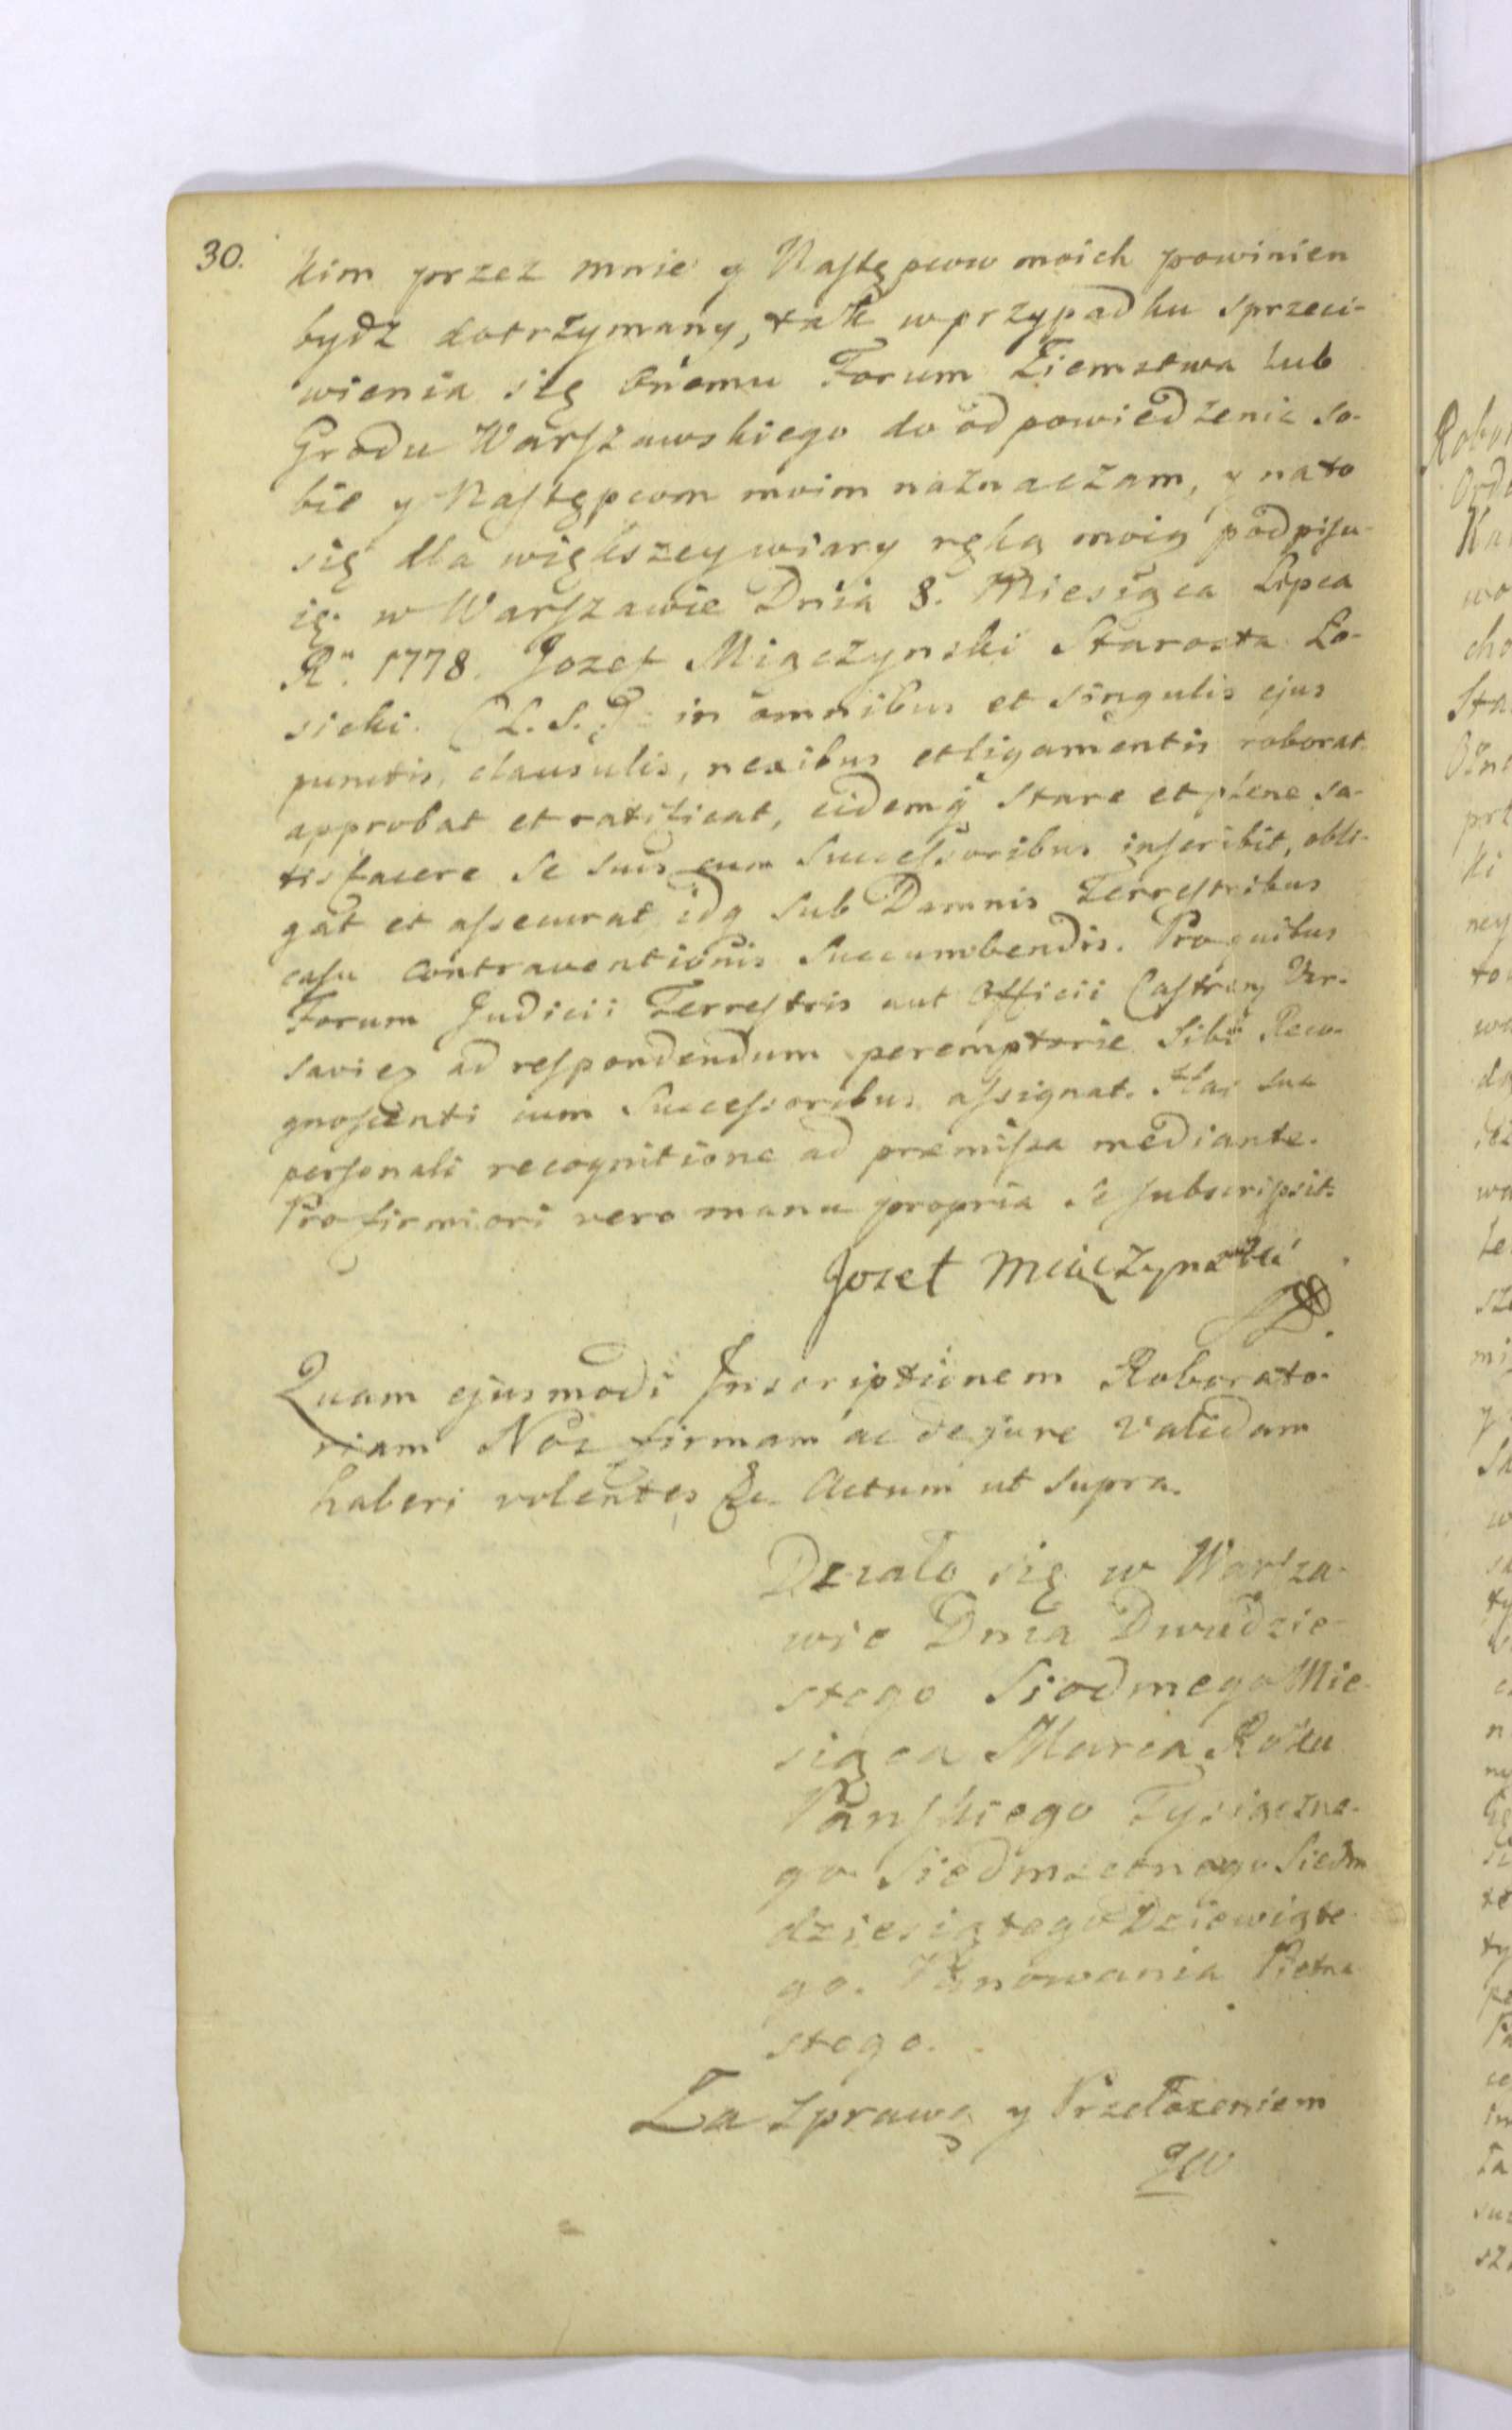 30.
kim przez mnie y Następcow moich powinien
bydz dotrzymany, tak w przypadku sprzeci-
wienia się Onemu Forum Ziemstwa lub
Grodu Warszawskiego do odpowiedzenia so-
bie y Nastęcom moim naznaczam, y na to
się dla większey wiary ręką moią podpisu-
ię. w Warszawie Dnia 8. Miesiąca Lipca
Rº. 1778. Jozef Miączynski Starosta Ło-
sicki. (L. S.) in omnibus et singulis ejus
punctis, clausulis, nexibus et ligamentis roborat
approbat et ratificat, eidemq́ stare et plene sa-
tisfacere se suis cum Successoribus inscribit, obli-
gat et assecurat idq sub Damnis Terrestribus
casu Contraventionis Succumbendis. Pro quibus
Forum Judicii Terrestris aut Officii Castren Var-
savien ad respondendum peremptorie sibi Reco-
gnoscenti cum Successoribus assignat. Hac sua
personali recognitione ad præmissa mediante.
Pro firmiori vero manu propria se subscripsit.
Jozef Miączynski
Quam ejusmodi Inscriptionem Roborato-
riam Nos firmam ac de jure validam
haberi volentes &c. Actum ut supra.
Działo się w Warsza-
wie Dnia Dwudzie-
stego Siodmego Mie-
siąca Marca Roku
Pańskiego Tysiączne-
go Siedmsetnego Siedm
dziesiątego Dziewiąte-
go. Panowania Pietna-
stego.
Za Sprawą y Przełożeniem
JW